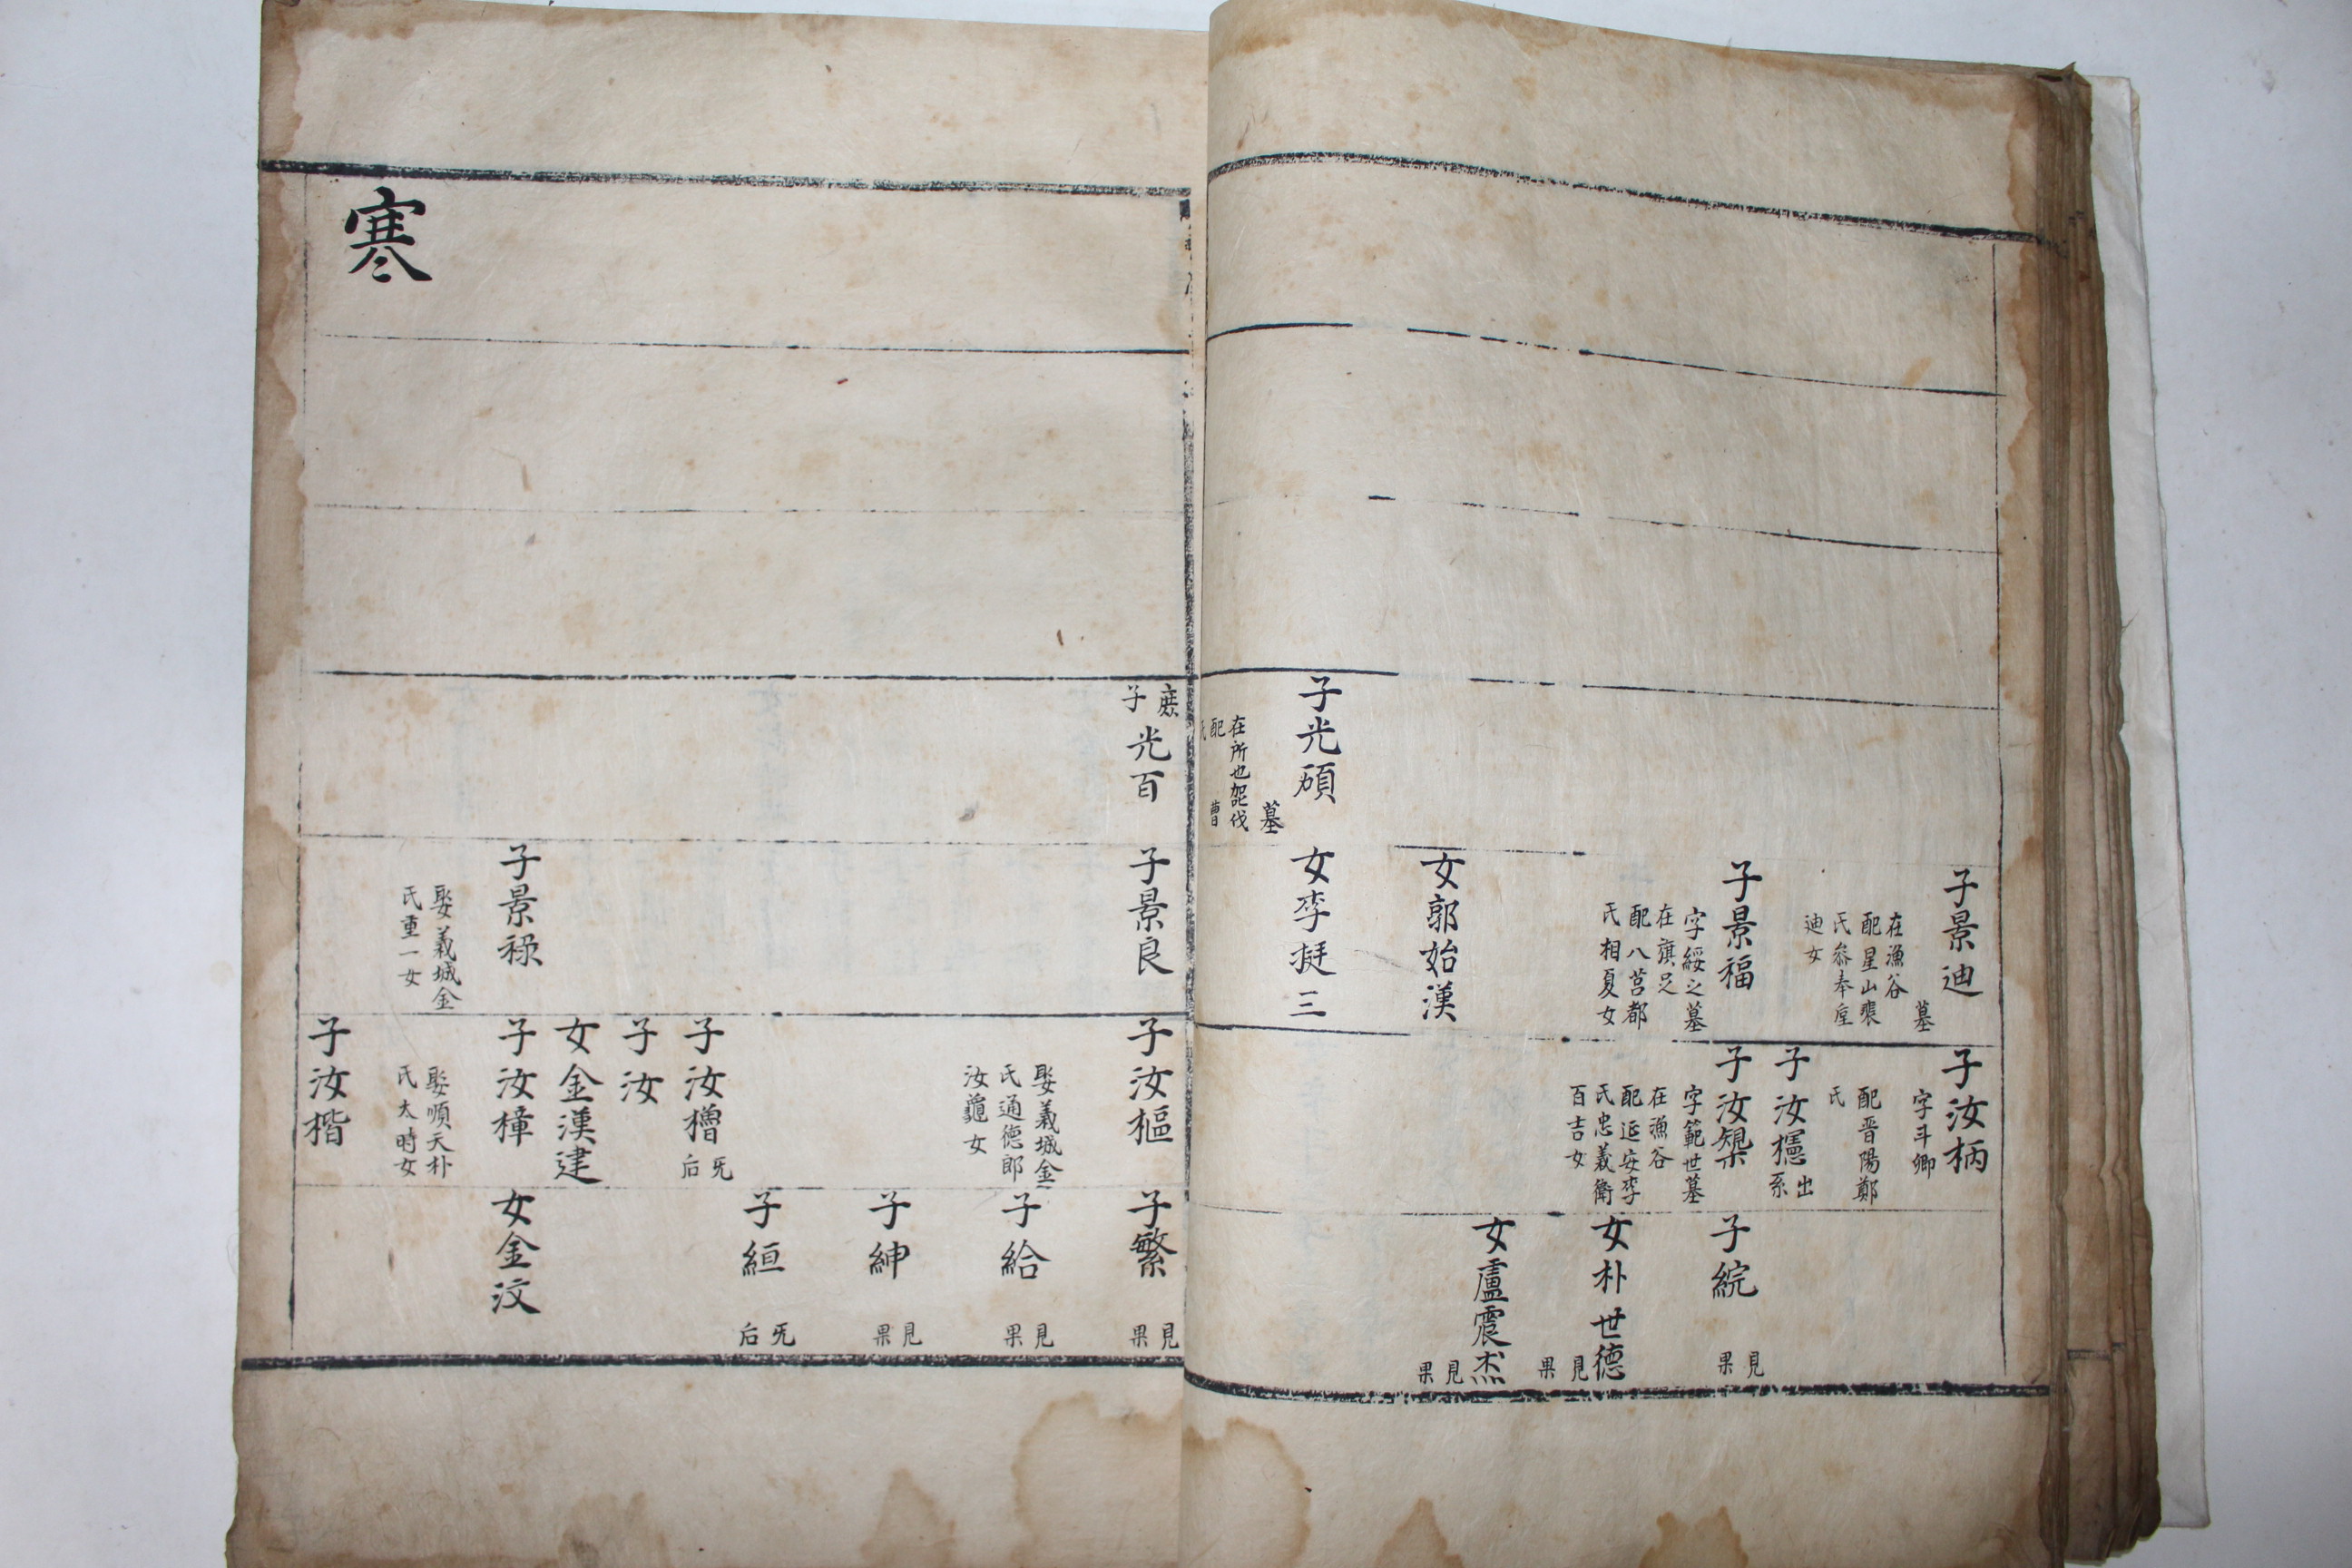 子光碩
墓
在所也㖙伐
配
曺
氏
子景迪
墓
在漁谷
配星山裴
氏叅奉垕
迪女
子景福
字綏之墓
在旗足
配八莒都
氏相夏女
女郭始漢
女李挺三
子汝柄
字斗卿
配晋陽鄭
氏
子汝櫶
出系
子汝槼
字範世墓
在漁谷
配延安李
氏忠義衛
百吉女
子綂
見果
女朴世德
見果
女盧震烋
見果
寒
庶子光百
子景良
子景祿
娶義城金
氏重一女
子汝樞
娶義城金
氏通德郎
汝龜女
子汝櫓
旡后
子汝
女金漢建
子汝樟
娶順天朴
氏太時女
子汝楷
子繁
見果
子給
見果
子紳
見果
子絙
旡后
女金汶